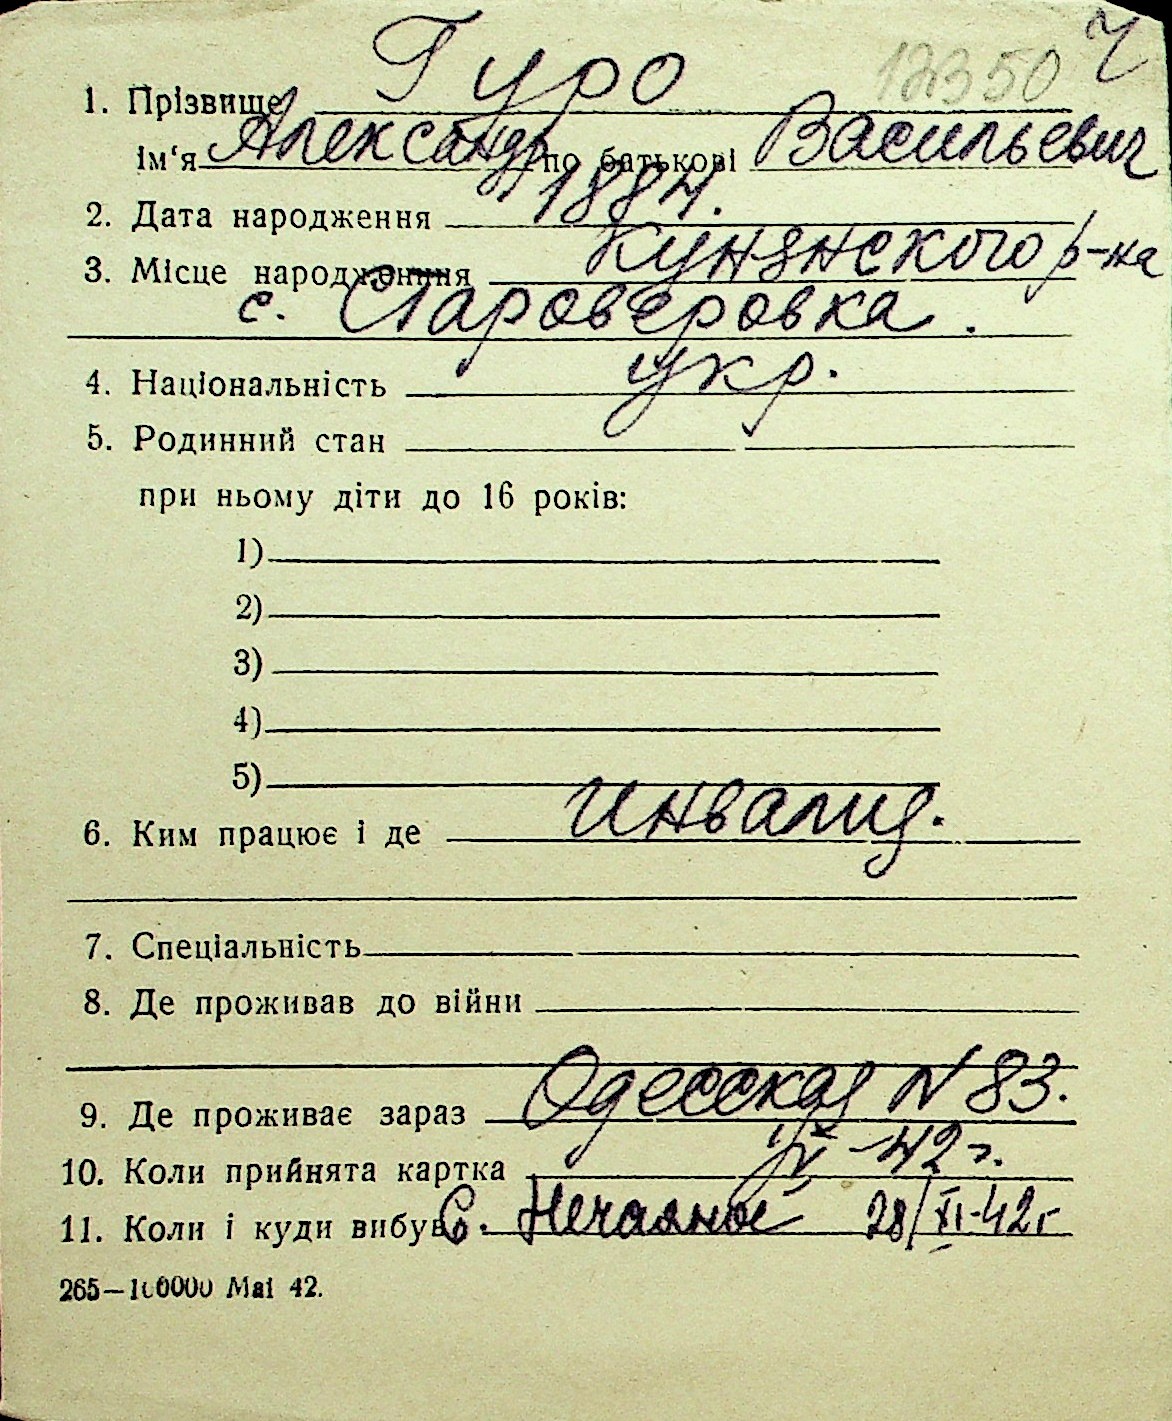 12350 Ч
1. Прізвище Гуро
ім'я Александр по батькові Васильевич
2. Дата народження 1884.
3. Місце народження р-на
с. Староверовка.
4. Національність укр.
5. Родинний стан
при ньому діти до 16 років:
1)
2)
3)
4)
5)
6. Ким працює і де Инвалид.
7. Спеціальність
8. Де проживав до війни
9. Де проживає зараз Одесская N 83.
10. Коли прийнята картка -42 г.
11. Коли і куди вибув с. 28/XI-42 г
265—100000 Маі 42.